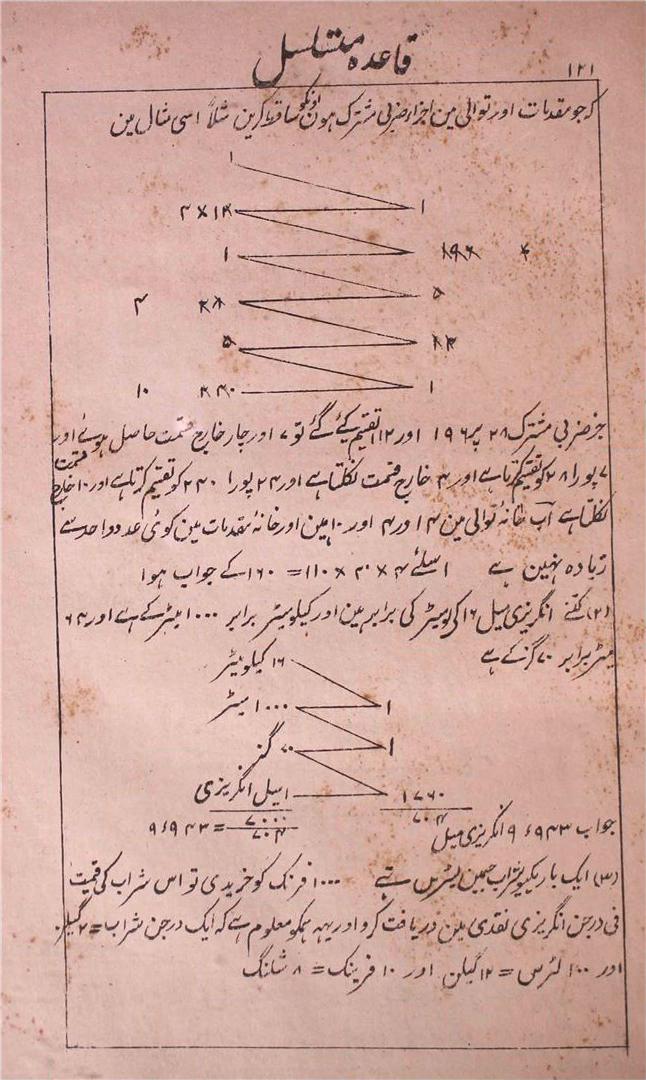 ۱۲۱
قاعدہ متسلسل
کہ جو مقدمات اور توالی مین اجزاء ضربی مشترک ہون اونکو ساقط کرین مثلاً اسی مثال مین
۱
۴ × ۱۴ ۱
۱ ۱۹۶
۴ ۲۸ ۵
۵
۱۰ ۲۴۰ ۱
جز ضربی مشترک ۲۸ پر ۱۹۶ اور ۱۱۲ تقسیم کیے گئے تو ۷ اور چار خارج قسمت حاصل ہوئے اور
۷ پورا ۲۸ کو تقسیم کرتا ہے اور ۴ خارج قسمت نکلتا ہے اور ۲۴ پورا ۲۴۰ کو تقسیم کرتا ہے اور ۱۰ خارج قسمت
نکلتا ہے اب خانۂ توالی مین ۴ اور ۴ اور ۱۰ ہین اور خانۂ مقدمات مین کوئی عدد واحد سے
زیادہ نہین ہے اسلئے ۴ × ۴ × ۱۰ = ۱۶۰ کے جواب ہوا
(۲) کتنے انگریزی میل ۱۶ کیلومیٹر کی برابر ہین اور کیلومیٹر برابر ۱۰۰۰ میٹر کے ہے اور ۶۴
میٹر برابر ۷۰ گز کے ہے
۱۶ کیلومیٹر
۱۰۰۰ میٹر ۱
۷۰ گز ۱
۱ میل انگریزی ۱۷۶۰
۷۰۰۰ / ۷۰۴ = ۹٫۹۴۳ ۷۰۴
جواب ۹٫۹۴۳ انگریزی میل
(۳) ایک شراب جسمین لیٹرس تھے ۱۰۰۰ فرنک کو خریدی تو اس شراب کی قیمت
فی درجن انگریزی نقدی مین دریافت کرو اور یہہ ہمکو معلوم ہے کہ ایک درجن شراب = ۲ گیلن
اور ۱۰۰ لٹرس = ۲۲ گیلن اور ۱۰ فرینک = ۸ شلنگ